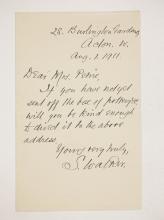 28. Burlington Gardens,
Acton. W.
Aug. 1. 1911.
Dear Mrs. Petrie,
If you have not yet
sent off the box of pottery,
will you be kind enough
to direct it to the above
address.
Yours very truly,